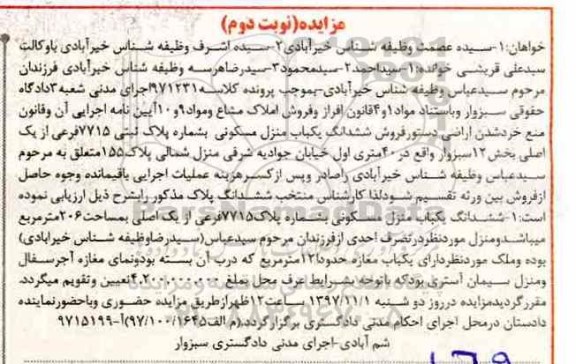 مزایده(نوبت دوم)
خواهان:۱-سیده عصمت وظیفه شناس خیرآبادی۲-سیده اشرف وظیفه شناس خیرآبادی باوکالت
سیدعلی قریشی خوانده:۱-سیداحمد۲-سیدمحمود۳-سیدرضاهرسه وظیفه شناس خیرآبادی فرزندان
مرحوم سیدعباس وظیفه شناس خیرآبادی-بموجب پرونده کلاسه۹۷۱۲۳۱اجرای مدنی شعبه۳دادگاه
حقوقی سبزوار وباستناد مواد۱و۴قانون افراز وفروش املاک مشاع ومواد۹و۱۰آیین نامه اجرایی آن وقانون
منع خردشدن اراضی دستورفروش ششدانگ یکباب منزل مسکونی بشماره پلاک ثبتی ۷۷۱۵فرعی از یک
اصلی بخش۱۲سبزوار واقع در۴۰متری اول خیابان جوادیه شرقی منزل شمالی پلاک۱۵۵متعلق به مرحوم
سیدعباس وظیفه شناس خیرآبادی راصادر وپس ازکسرهزینه عملیات اجرایی باقیمانده وجوه حاصل
ازفروش بین ورثه تقسیم شودلذا کارشناس منتخب ششدانگ پلاک مذکور رابشرح ذیل ارزیابی نموده
است:۱-ششدانگ یکباب منزل مسکونی بشماره پلاک۷۷۱۵فرعی از یک اصلی بمساحت۲۰۶مترمربع
میباشدومنزل موردنظردرتصرف احدی ازفرزندان مرحوم سیدعباس(سیدرضاوظیفه شناس خیرابادی)
بوده وملک موردنظردارای یکباب مغازه حدود۱۲مترمربع که درب آن بسته بودونمای مغازه آجرسفال
ومنزل سیمان آستری بودکه باتوجه بشرایط عرف محل مبلغ ۴،۲۰۰،۰۰۰،۰۰۰تعیین وتقویم میگردد.
مقررگردیدمزایده درروز دو شنبه ۱۳۹۷/۱۱/۱ ساعت۱۲ظهرازطریق مزایده حضوری وباحضورنماینده
دادستان درمحل اجرای احکام مدنی دادگستری برگزارگردد.(م الف۹۷/۱۰۰/۱۶۴۵)آ-۹۷۱۵۱۹۹
شم آبادی-اجرای مدنی دادگستری سبزوار